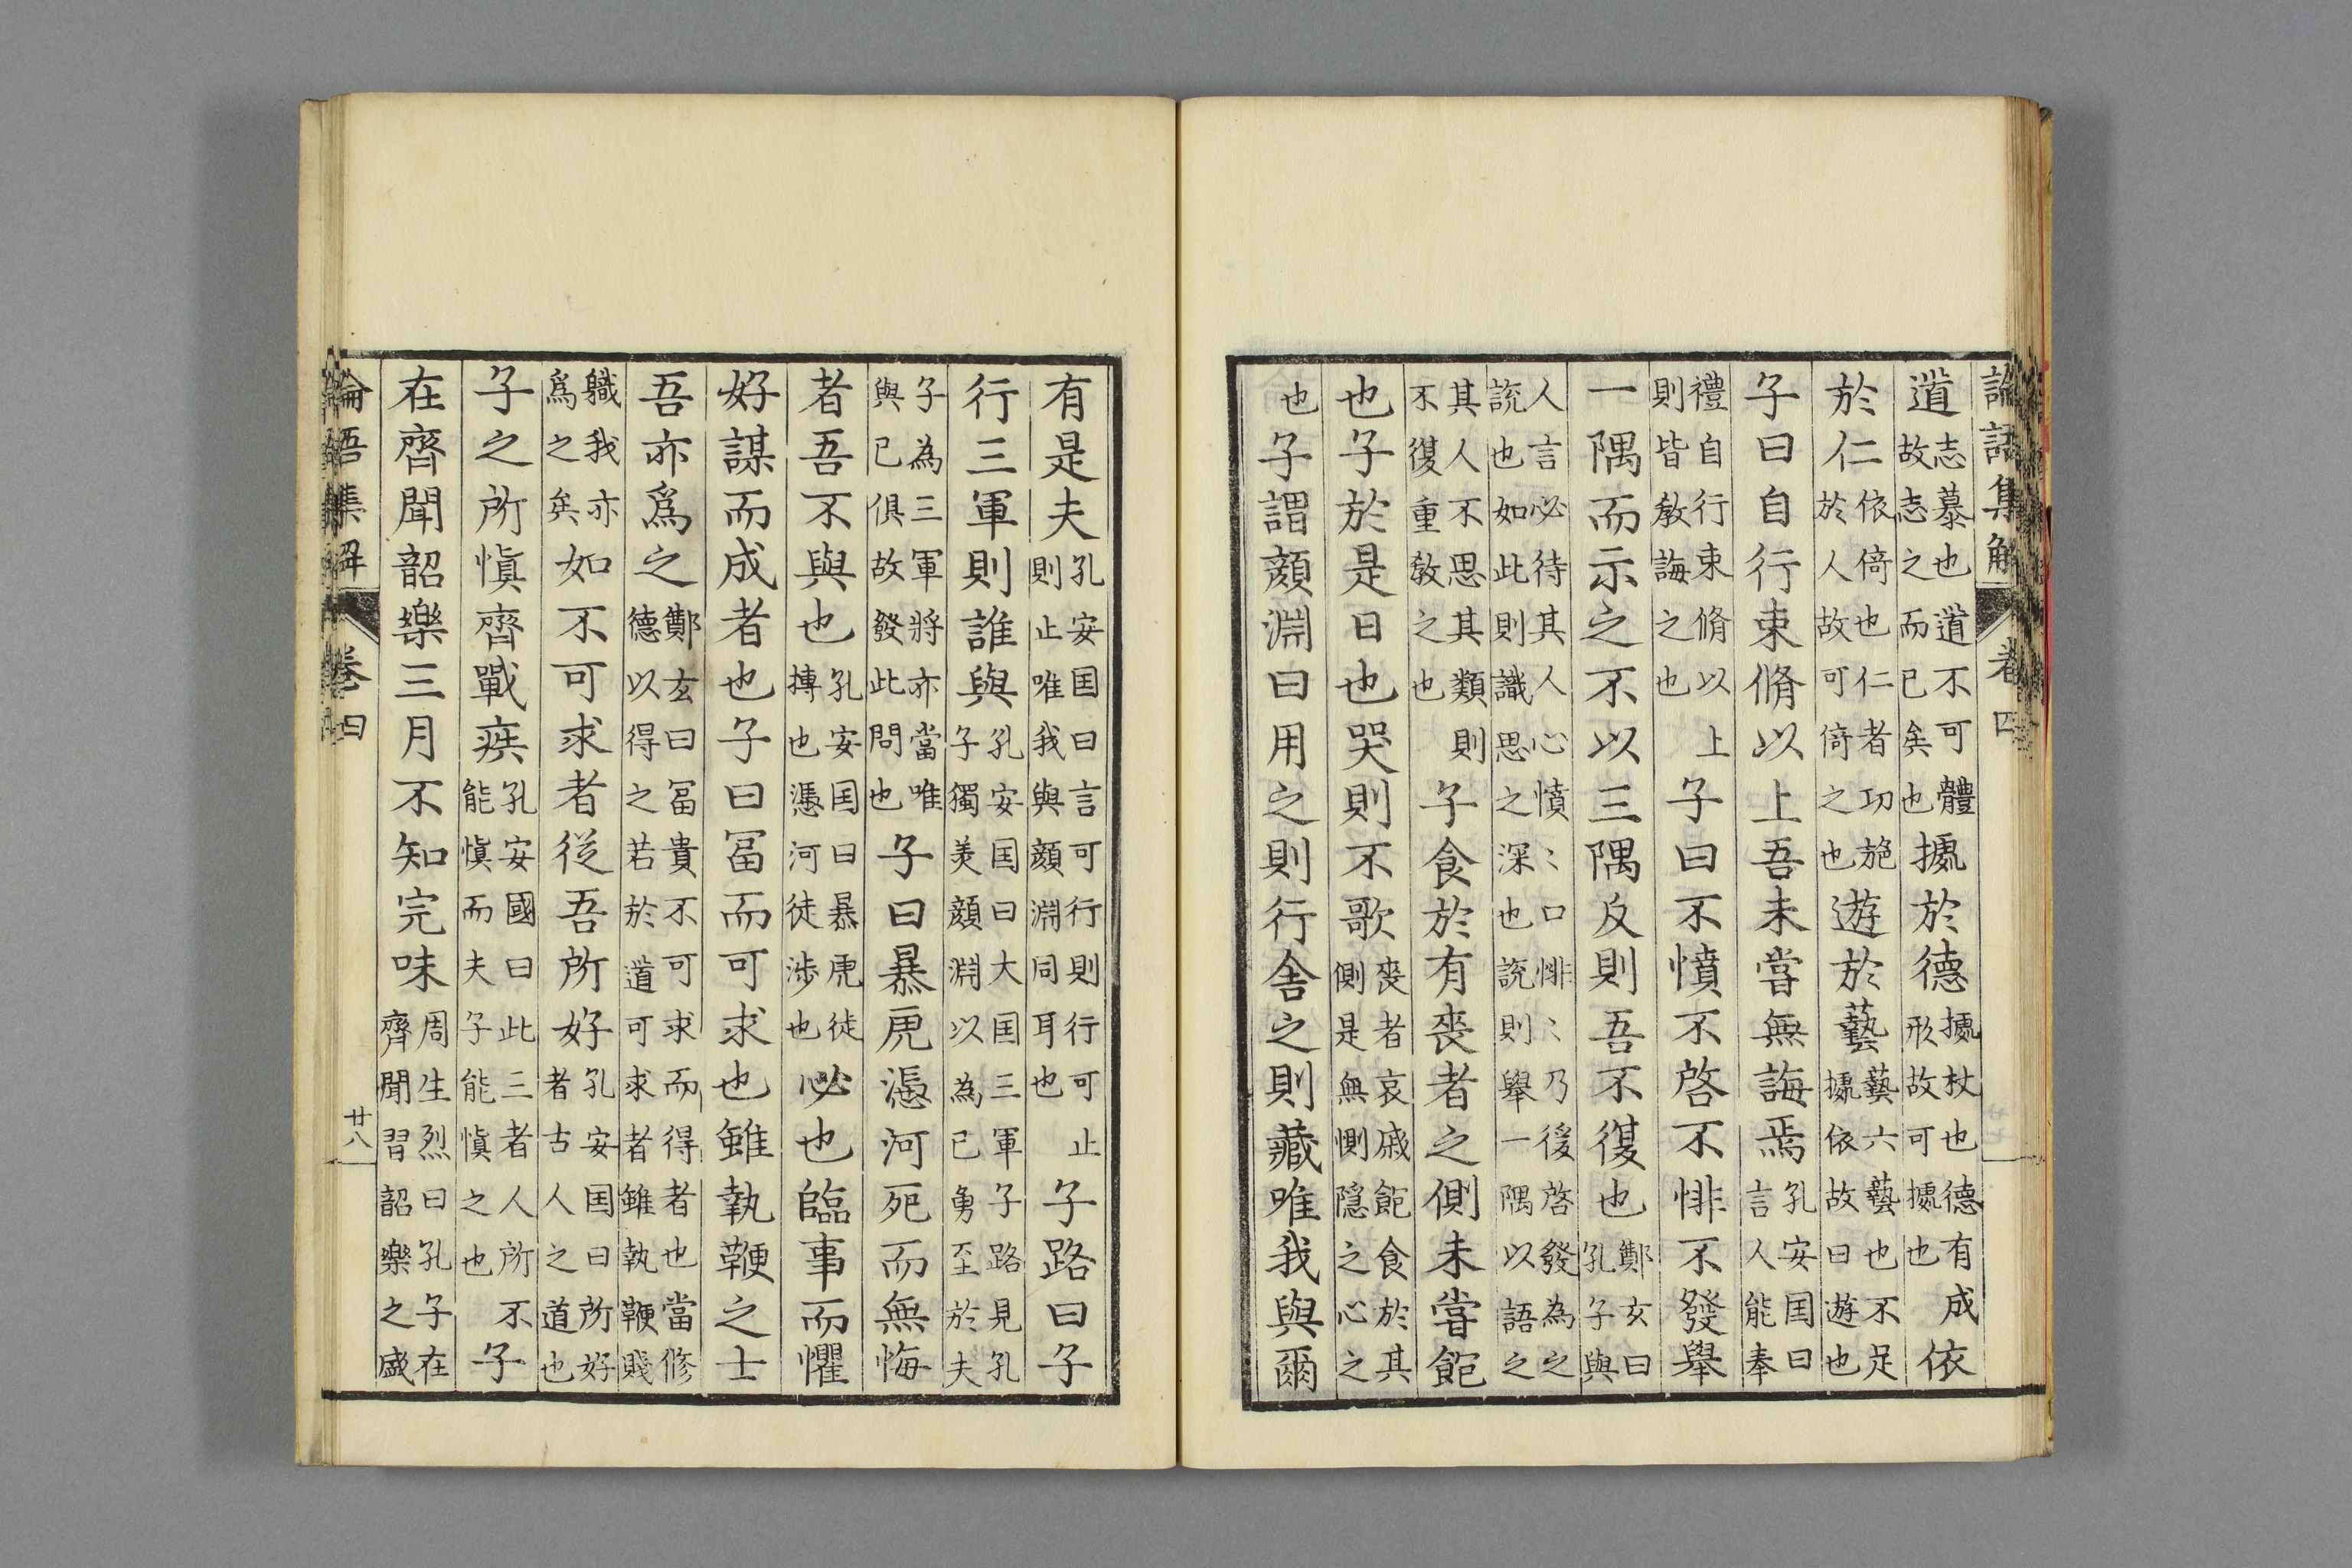 論語集解 卷四
道志慕也道不可體故志之而已矣也據於德據杖也德有成形故可據也依
於仁依倚也仁者功施於人故可倚之也遊於藝藝六藝也不足據依故曰遊也
子曰自行束脩以上吾未甞無誨焉孔安囯曰言人能奉
禮自行束脩以上則皆敎誨之也子曰不憤不啓不悱不發舉
一隅而示之不以三隅反則吾不復也鄭玄曰孔子與
人言必待其人心憤〻口悱〻乃後啓發為之說也如此則識思之深也說則舉一隅以語之
其人不思其類則不復重敎之也子食於有喪者之側未甞飽
也子於是日也哭則不歌喪者哀戚飽食於其側是無惻隱之心之
也子謂顔淵曰用之則行舍之則藏唯我與爾
有是夫孔安囯曰言可行則行可止則止唯我與顔淵同耳也子路曰子
行三軍則誰與孔安囯曰大囯三軍子路見孔子獨美顔淵以為已勇至於夫
子為三軍將亦當唯與已俱故發此問也子曰暴虎憑河死而無悔
者吾不與也孔安囯曰暴虎徒搏也憑河徒涉也必也臨事而懼
好謀而成者也子曰冨而可求也雖執鞭之士
吾亦爲之鄭玄曰冨貴不可求而得者也當修德以得之若於道可求者雖執鞭賤
職我亦爲之矣如不可求者從吾所好孔安囯曰所好者古人之道也
子之所愼齊戰疾孔安國曰此三者人所不能愼而夫子能愼之也子
在齊聞韶樂三月不知完味周生烈曰孔子在齊聞習韶樂之盛
論語集解 卷四 廿八